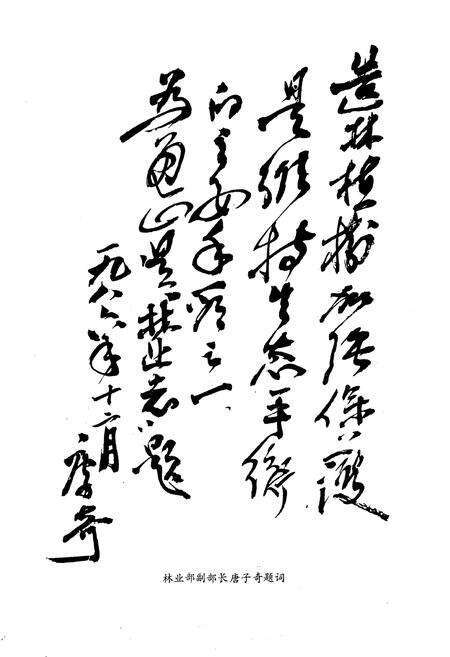 造林植树加强保护
是维持生态平衡
的主要手段之一、
为山县林业志题
一九八六年十二月
唐子奇
林业部副部长唐子奇题词